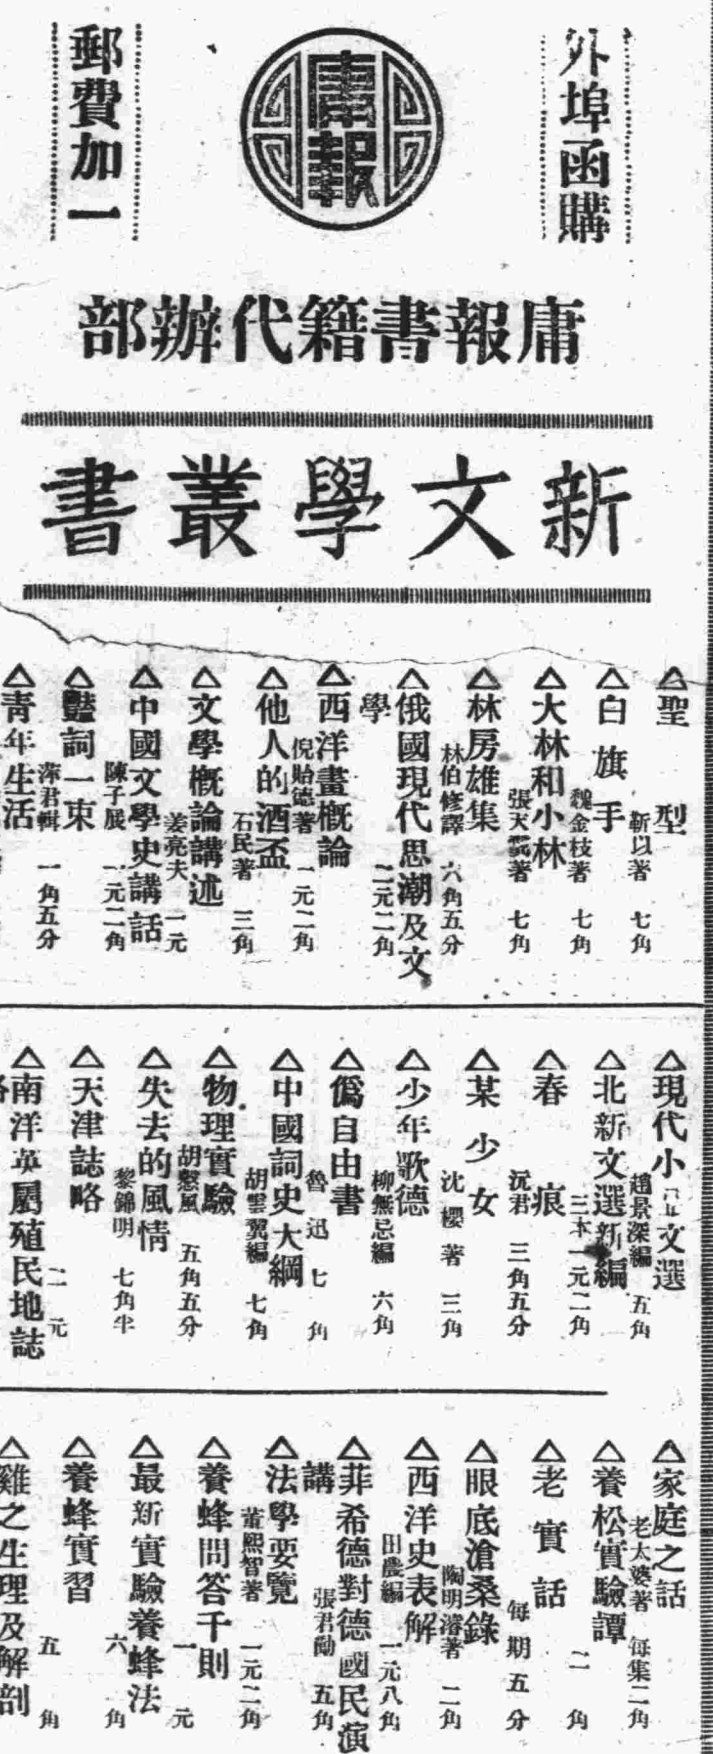 外埠函購
庸報
郵費加一
庸報書籍代辦部
新文學叢書
△聖型
靳以著 七角
△白旗手
魏金枝著 七角
△大林和小林
張天翼著 七角
△林房雄集
林伯修譯 六角五分
△俄國現代思潮及文
學
二元二角
△西洋畫概論
倪貽德著 一元二角
△他人的酒盃
石民著 三角
△文學概論講述
姜亮夫 一元
△中國文學史講話
陳子展 一元二角
△豔詞一束
萍君輯 一角五分
△青年生活
△現代小品文選
趙景深編 五角
△北新文選新編
三本一元二角
△春痕
沅君 三角五分
△某少女
沈櫻著 三角
△少年歌德
柳無忌編 六角
△僞自由書
魯迅 七角
△中國詞史大綱
胡雲翼編 七角
△物理實驗
胡慤風 五角五分
△失去的風情
黎錦明 七角半
△天津誌略
二元
△南洋英屬殖民地誌
略
△家庭之話
老太婆著 每集二角
△養松實驗譚
二角
△老實話
每期五分
△眼底滄桑錄
陶明濬著 二角
△西洋史表解
田農編 一元八角
△菲希德對德國民演
講
張君勱 五角
△法學要覽
董熙智著 一元二角
△養蜂問答千則
一元
△最新實驗養蜂法
六角
△養蜂實習
五角
△雞之生理及解剖